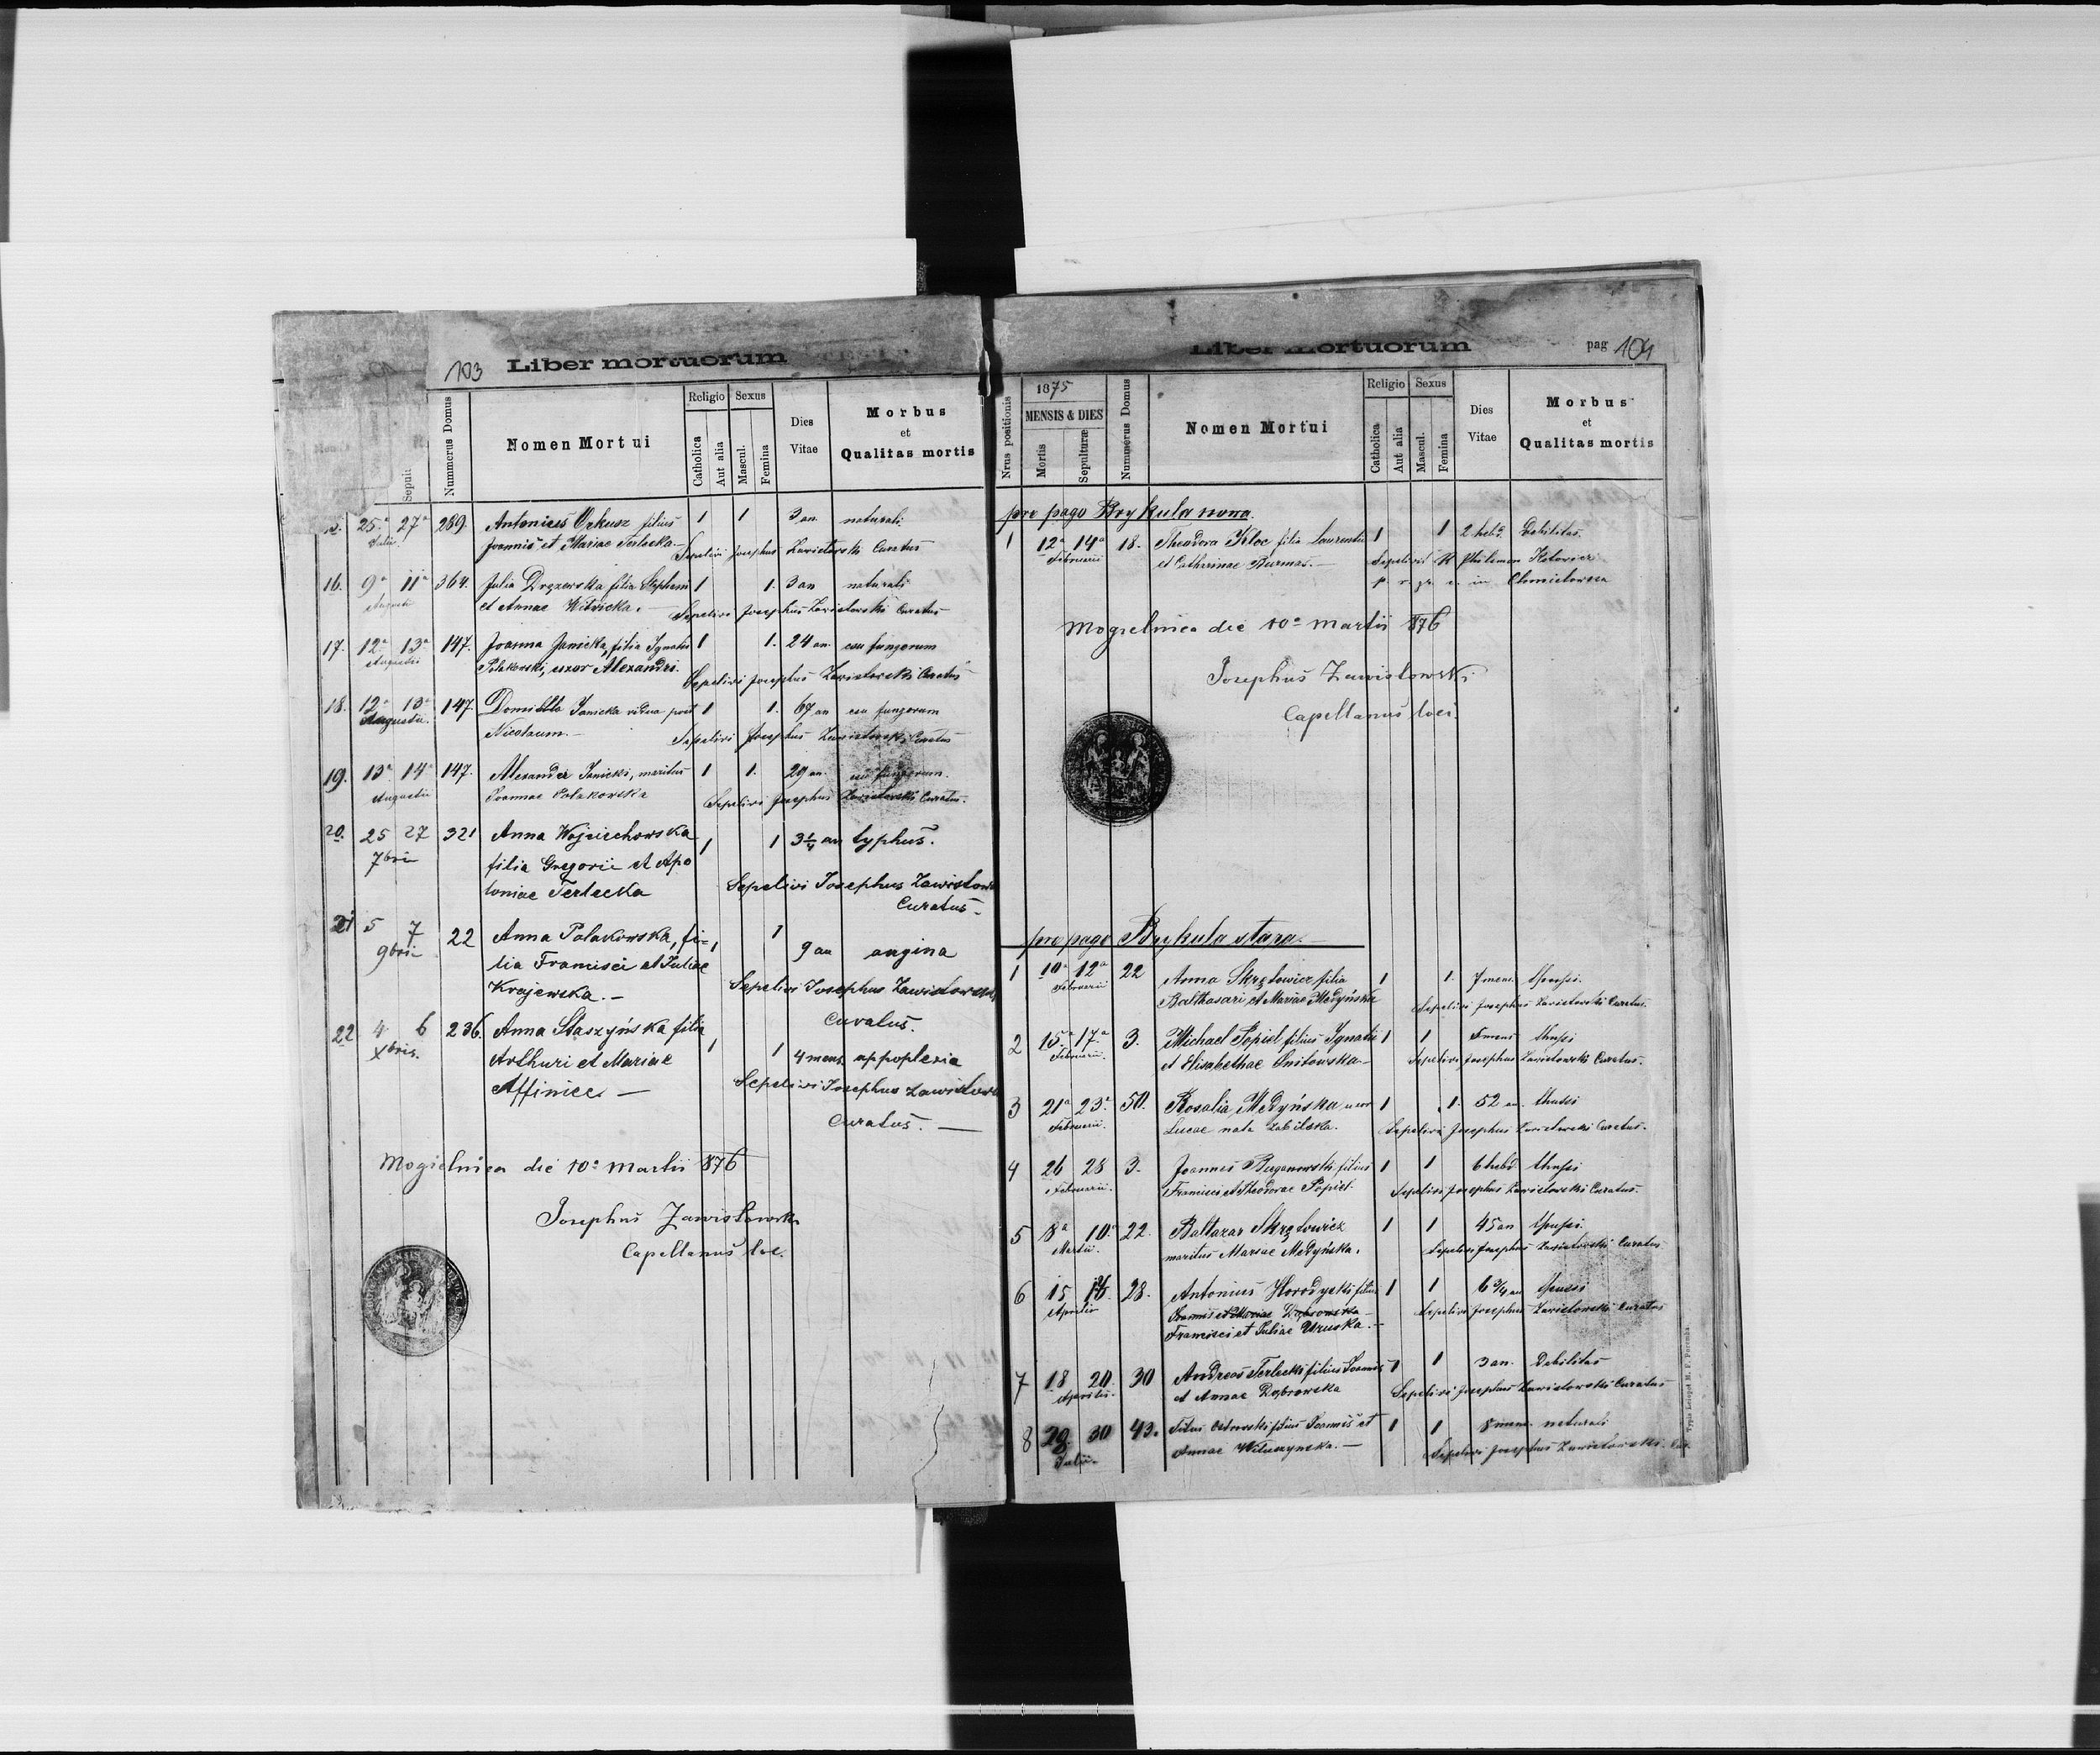 103
Liber mortuorum
Sepult
Nummerus Domus
Nomen Mortui
Religio
Catholica
Aut alia
Sexus
Mascul.
Femina
Dies
Vitae
Morbus
et
Qualitas mortis
25a 27a 289. Antonius Orkusz filius 1 1 3 an naturali
Julii Joannis et Mariae Terlecka.— Sepelivi Josephus Zawistowski Curatus
16. 9a 11a 364. Julia Drozowska filia Stephani 1 1. 3 an naturali
Augusti et Annae Witwicka.— Sepelivi Josephus Zawistowski Curatus
17. 12a 13a 147. Joanna Janicka, filia Ignatii 1 1. 24 an. esu fungorum
Augusti Polakowski, uxor Alexandri. Sepelivi Josephus Zawistowski Curatus
18. 12a 13a 147. Domicella Janicka vidua post 1 1. 67 an esu fungorum
Augusti. Nicolaum.— Sepelivi Josephus Zawistowski Curatus
19. 13a 14a 147. Alexander Janicki, maritus 1 1. 29 an. esu fungorum.
Augusti Joannae Polakowska Sepelivi Josephus Zawistowski Curatus.
20. 25 27 321 Anna Wojciechowska
7bris filia Gregorii et Apo 1 1 3 1/4 an typhus.
loniae Terlecka Sepelivi Josephus Zawistowski
Curatus.
21 5 7 22 Anna Polakowska, fi- 1 1
9bris lia Francisci et Juliae 9 an angina
Krajewska.— Sepelivi Josephus Zawistowski
Curatus.
22 4 6 236. Anna Staszyńska filia
Xbris. Arthuri et Mariae 1 1 4 mens. appoplexia
Affinice.— Sepelivi Josephus Zawistowski
Curatus.—
Mogielnica die 10a Martii 876
Josephus Zawistowski
Capellanus loc.
Liber mortuorum
pag 104
Nrus positionis
1875
MENSIS & DIES
Mortis
Sepulturæ
Nummerus Domus
Nomen Mortui
Religio
Catholica
Aut alia
Sexus
Mascul.
Femina
Dies
Vitae
Morbus
et
Qualitas mortis
pro pago Brykula nowa.
1 12a 14a 18. Theodora Kloc filia Laurentii 1 1 2 hebd. Debilitas.
Februarii et Catharinae Burmas.— Sepelivit R Philemon
p. r. gr. c. in
Mogielnica die 10a Martii 876
Josephus Zawistowski
Capellanus loci.
pro pago Brykula stara.—
1 10a 12a 22 Anna Skrętowicz filia 1 1. 7 mens. thussi.
Februarii Balthasari et Mariae Medyńska Sepelivi Josephus Zawistowski Curatus.
2 15a 17a 3. Michael Popiel filius Ignatii 1 1 mens thussi
Februarii. et Elisabethae Sepelivi Josephus Zawistowski Curatus.
3 21a 23a 50. Rosalia Medyńska uxor 1 1. 52 an. thussi
Februarii. Lucae nata Zabilska. Sepelivi Josephus Zawistowski Curatus.
4 26 28 3. Joannes filius 1 1 6 hebd. thussi
Februarii. Francisci et Theodorae Popiel. Sepelivi Josephus Zawistowski Curatus.
5 8a 10a 22. Baltazar Skrętowicz 1 1 45 an thussi.
Martii. maritus Mariae Medyńska. Sepelivi Josephus Zawistowski Curatus
6 15 28. Antonius Horodyski filius 1 1 6 3/4 an thussi
Aprilis Joannis et Mariae Dąbrowska Sepelivi Josephus Zawistowski Curatus
Francisci et Juliae Uruska.—
7 18 20. 30 Andreas Terlecki filius Joannis 1 1 3 an. Debilitas
Aprilis. et Annae Dąbrowska Sepelivi Josephus Zawistowski Curatus
8 29. 30 43. Titus Ostrowski filius Joannis et 1 1 8 mens. naturali
Julii. Annae Sepelivi Josephus Zawistowski Cur.